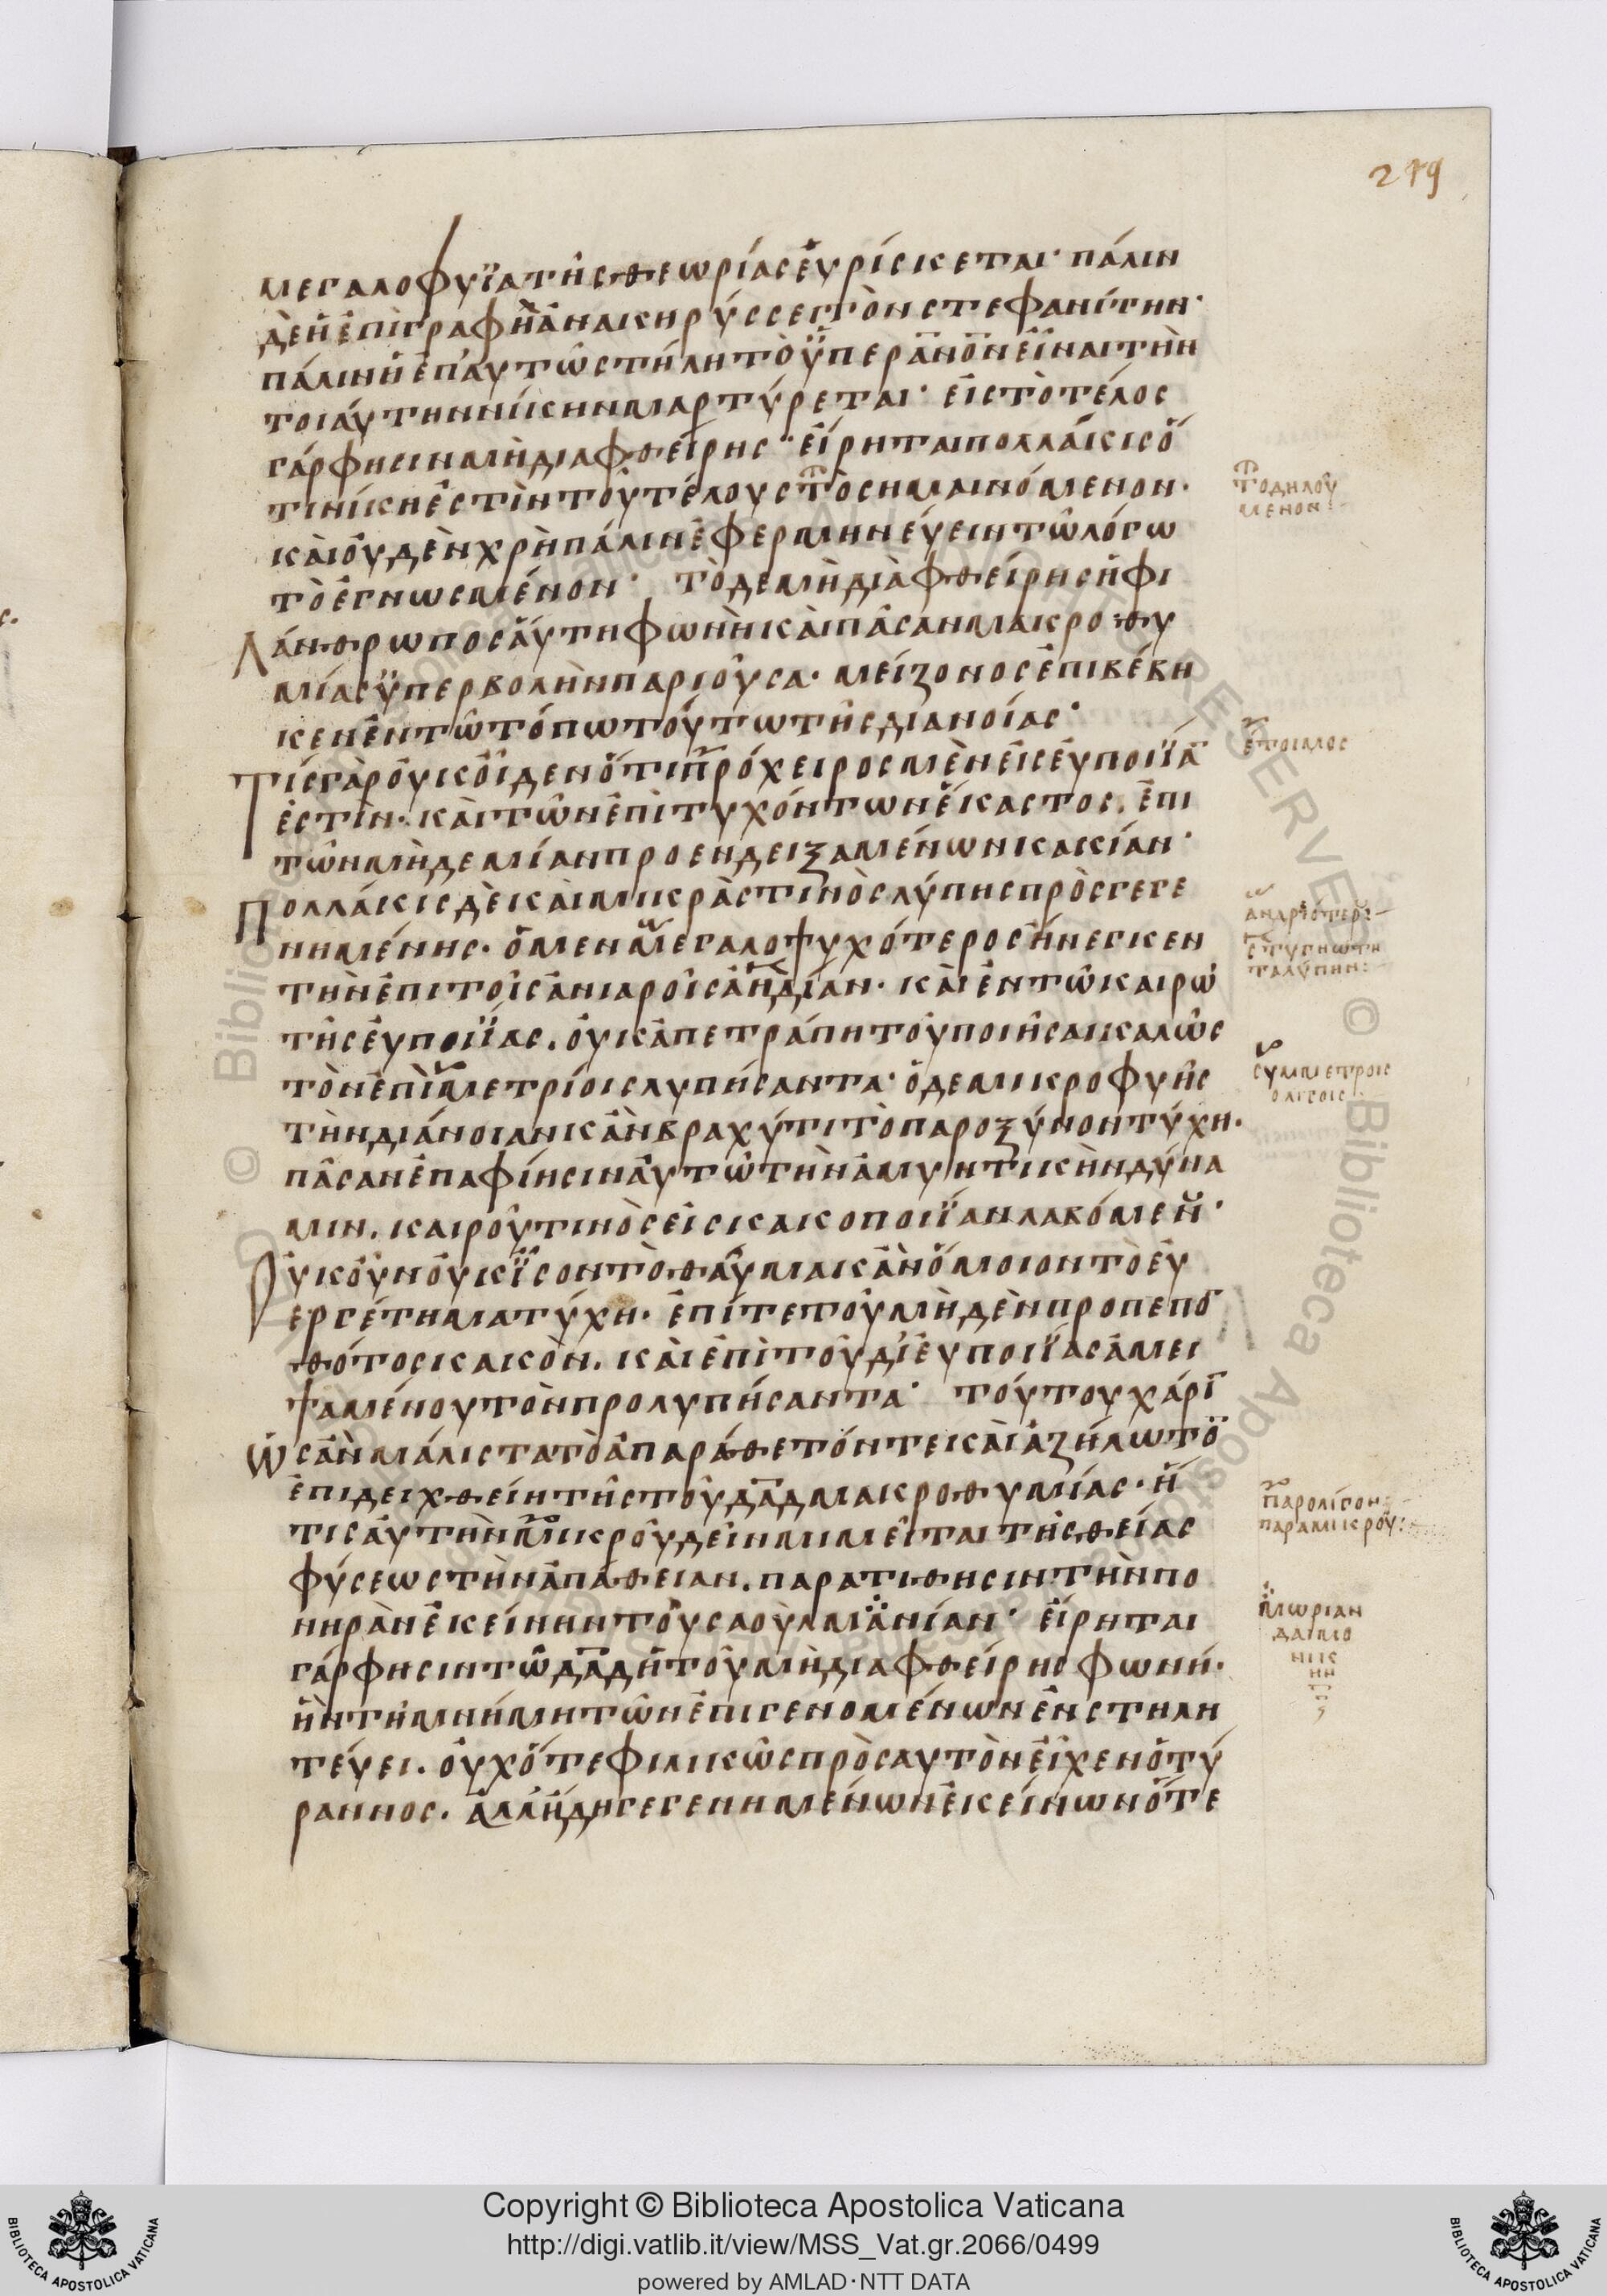 249
μεγαλοφυΐα τῆς θεωρίας εὑρίσκεται· πάλιν
δὲ ἡ ἐπιγραφὴ ἀνακηρύσσει τὸν στεφανίτην·
πάλιν ἡ ἐπ' αὐτῶ στήλη τὸ ὑπὲρ ἄνον εἶναι τὴν
τοιάυτην νίκην μαρτύρεται· εἰς τὸ τέλος
γάρ φησιν μὴ διαφθείρης· εἴρηται πολλάκις ὅ
τι νίκη ἐστὶν τοῦ τέλους τὸ σημαινόμενον·
καὶ οὐδὲν χρὴ πάλιν ἐφερμηνέυειν τῶ λόγω
τὸ ἐγνωσμένον· τὸ δε μὴ διαφθείρης ἡ φι
λάνθρωπος ἅυτη φωνὴ καὶ πᾶσαν μακροθυ
μίας ὑπερβολὴν παριοῦσα· μείζονος ἐπιβέβη
κεν ἐν τῶ τόπω τούτω τῆς διανοίας·
Τίς γὰρ οὐκ οἶδεν ὅτι πρόχειρος μὲν εἰς ἐυποιΐα
ἐστὶν· καὶ τῶν ἐπιτυχόντων ἕκαστος. ἐπι
τῶν μὴδεμίαν προενδειξαμένων κακίαν·
Πολλάκις δὲ καὶ μικρᾶς τινὸς λύπης πρὸσγεγε
νημένης· ὁ μεν μεγαλοψυχότερος ἤνεγκεν
τὴν ἐπι τοῖς ἀνιαροῖς ἀηδίαν· καὶ ἐν τῶ καιρῶ
τῆς ἐυποιΐας. οὐκ ἀπετράπη τοῦ ποιῆσαι καλῶς
τὸν ἐπὶ μετρίοις λυπήσαντα· ὁ δε μικροφυὴς
τὴν διάνοιαν κἂν βραχύ τι τὸ παροξύνον τύχη·
πᾶσαν ἐπαφίησιν αὐτῶ τὴν ἀμυντικὴν δύνα
μιν. καιροῦ τινὸς εἰς κακοποιΐαν λαβόμεν·
Οὐκοῦν οὐκ ἴσον τὸ θαῦμα κἂν ὅμοιον τὸ εὐ
εργέτημα τύχη· ἐπί τε τοῦ μὴδὲν προπεπο
θότος κακὸν. καὶ ἐπὶ τοῦ δι' ἐυποιΐας ἀμει
ψαμένου τὸν προλυπήσαντα· τούτου χάρι
ὡς ἂν μάλιστα τὸ ἀπαράθετόν τε καὶ ἀζήλωτο
ἐπιδειχθείη τῆς τοῦ δαδ μακροθυμίας· ἥ
τις ἀυτὴν μικροῦ δεῖν μιμεῖται τῆς θείας
φύσεως τὴν ἀπάθειαν. παρατιθησιν τὴν πο
νηρὰν ἐκείνην τοῦ σαοὺλ μανίαν· εἴρηται
γάρ φησιν τῶ δαδ ἡ τοῦ μὴ διαφθείρης φωνή·
ἣν τῆ μνήμη τῶν ἐπιγενομένων ἐνστηλη
τέυει. οὐχ ὅτε φιλικῶς πρὸς αυτὸν εἶχεν ὁ τύ
ραννος. ἀλλ' ἤδη γεγενημένων ἐκείνων ὅτε
τὸ δηλού
μενον:
ἕτοιμος
ἀνδριότερο
συμμετροις
ολιγοις
παρολίγον
παραμικρού:
μωριαν
δαιμο
νικ
ην
Copyright © Biblioteca Apostolica Vaticana
http://digi.vatlib.it/view/MSS_Vat.gr.2066/0499
powered by AMLAD·NTT DATA
BIBLIOTECA APOSTOLICA VATICANA
BIBLIOTECA APOSTOLICA VATICANA